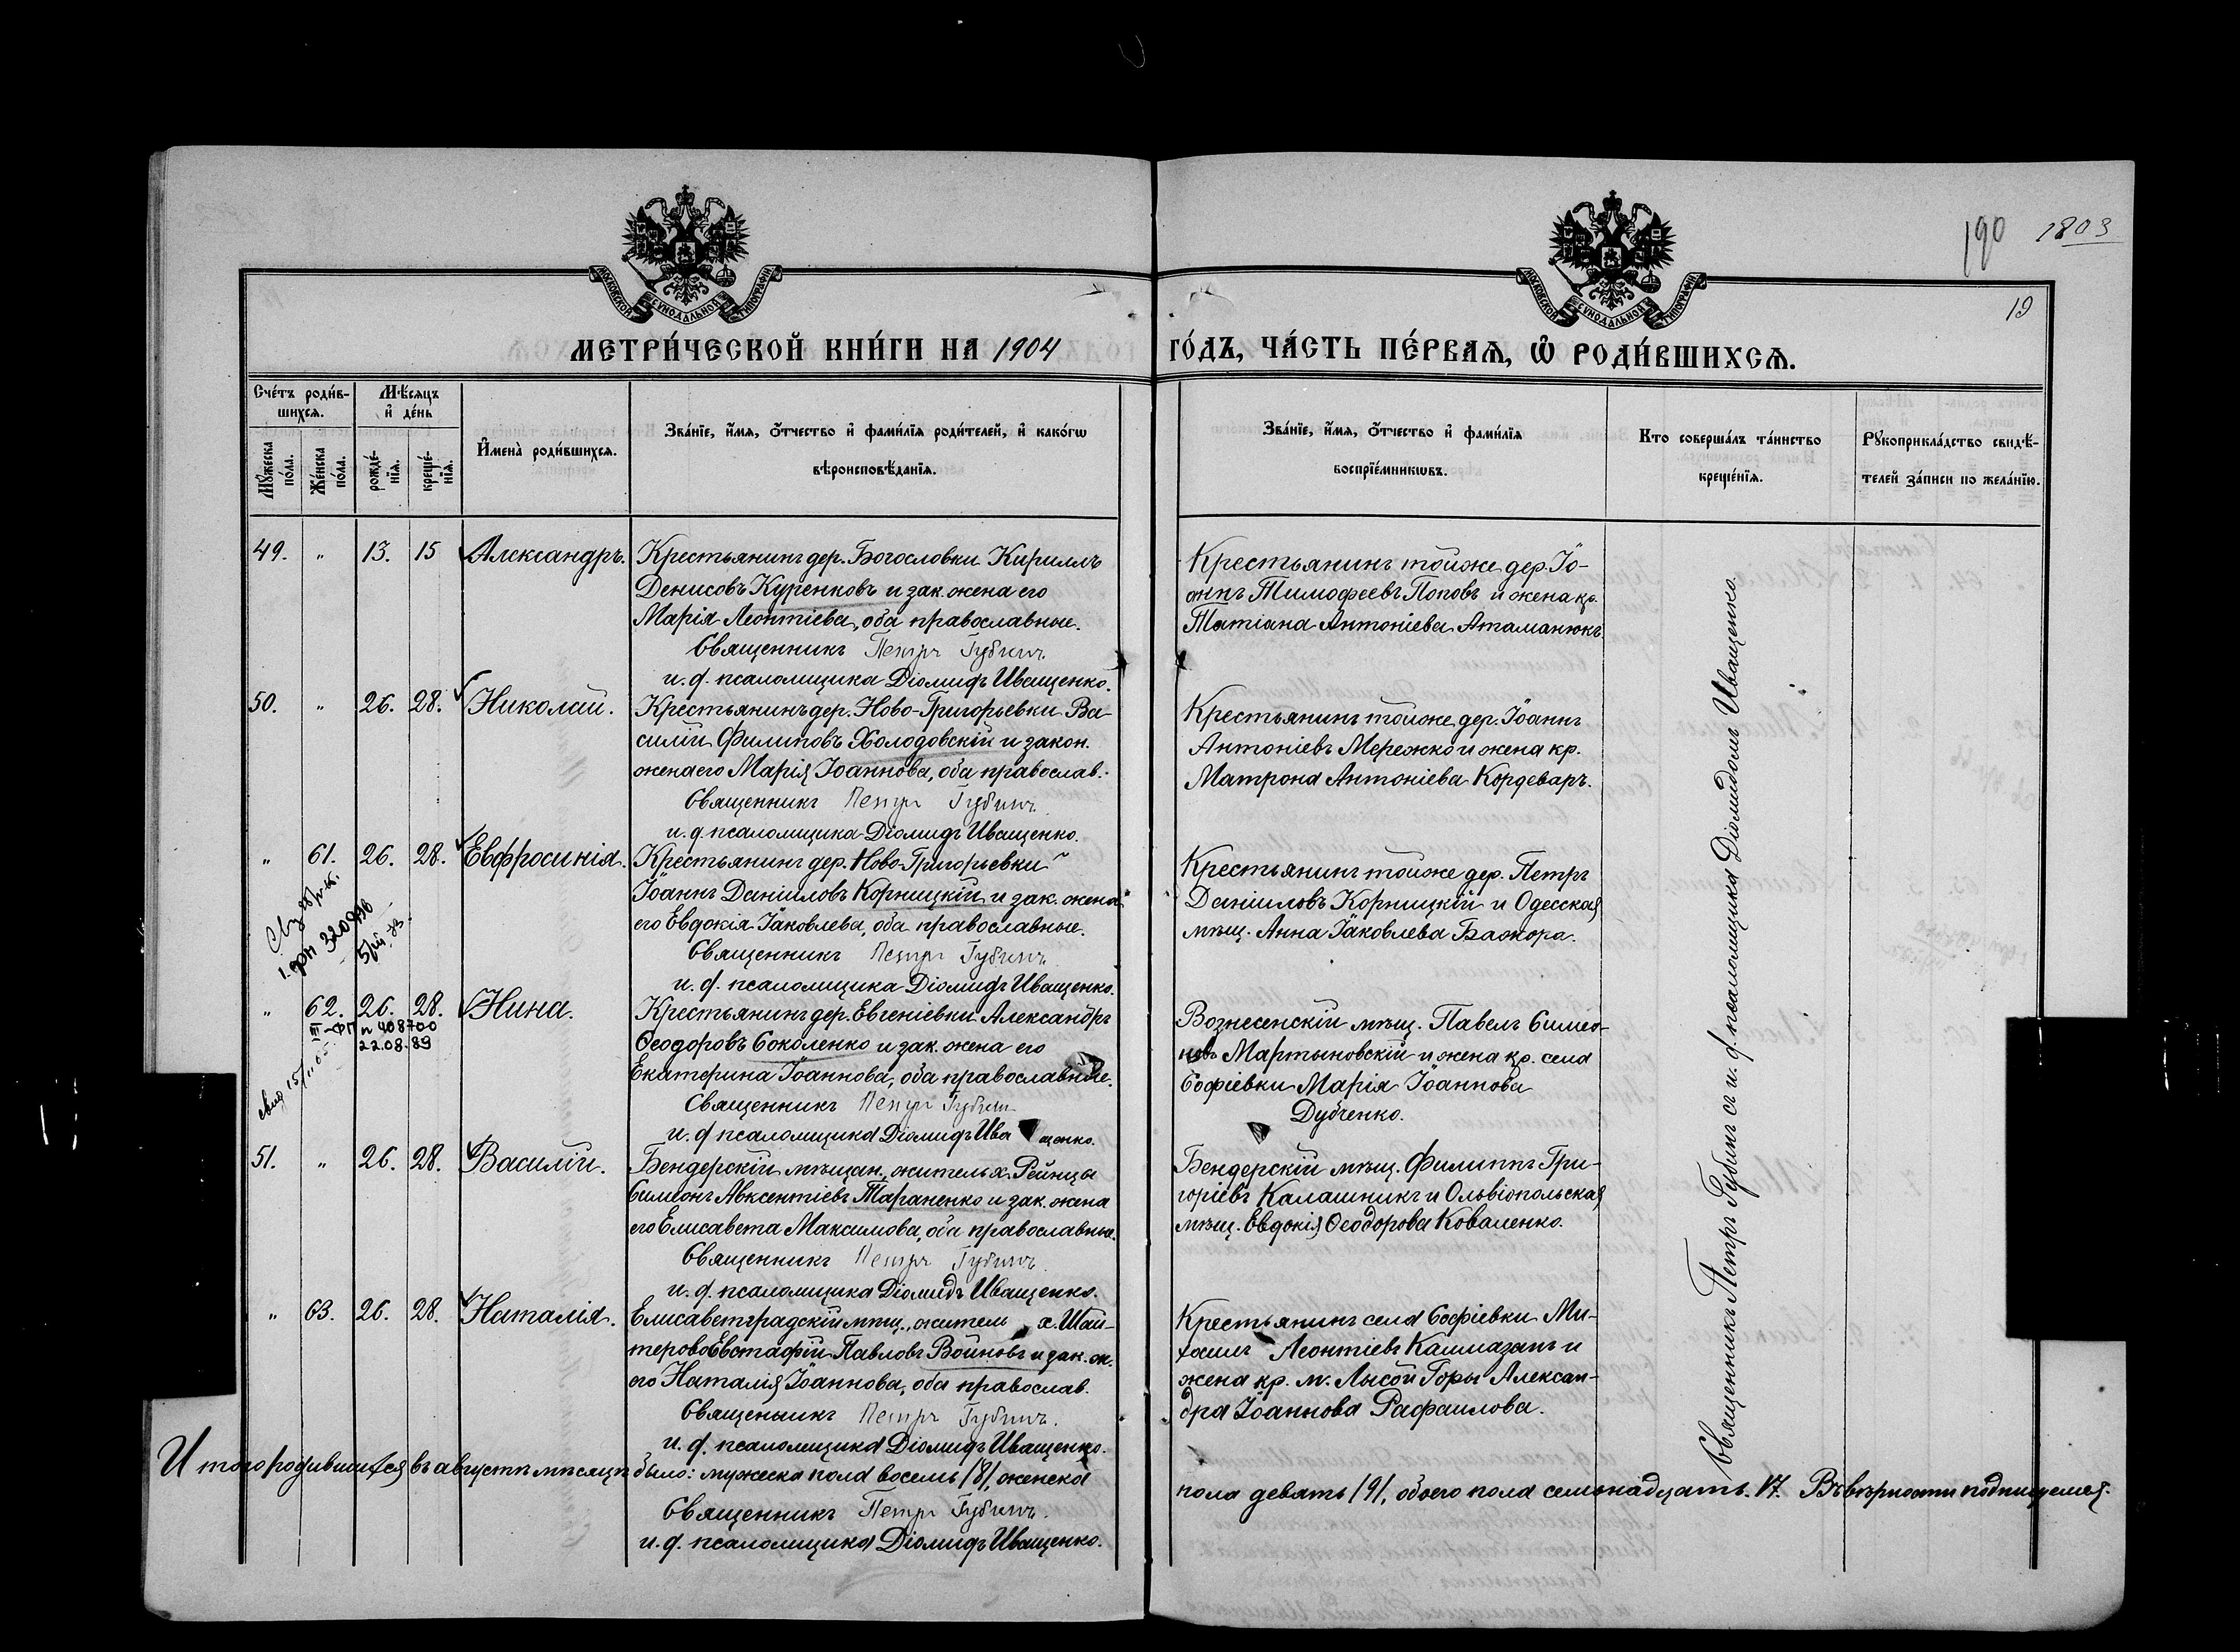 190 1803
19
МОСКОВСКОЙ СѴНОДАЛЬНОЙ ТИПОГРАФІИ
МОСКОВСКОЙ СѴНОДАЛЬНОЙ ТИПОГРАФІИ
МЕТРИ́ЧЕСКОЙ КНИ́ГИ НА 1904 ГО́ДЪ, ЧА́СТЬ ПЕ́РВАѦ, Ѡ҆ РОДИ́ВШИХСѦ.
Сче́тъ роди́в-
шихсѧ.
Мꙋ́жеска по́ла.
Же́нска по́ла.
Мѣ́сѧцъ
и҆ де́нь
рожде́-
нїѧ.
креще́-
нїѧ.
И҆мена̀ роди́вшихсѧ.
Зва́нїе, и҆́мѧ, ѻ҆́тчество и҆ фами́лїѧ роди́телей, и҆ како́гѡ
вѣроисповѣ́данїѧ.
Зва́нїе, и҆́мѧ, ѻ҆́тчество и҆ фами́лїѧ
воспрїе́мникѡвъ.
Кто соверша́лъ та́инство
креще́нїѧ.
Рꙋкоприкла́дство свидѣ́-
телей за́писи по жела́нїю.
49. " 13. 15 Александръ.
Крестьянинъ дер. Богословки Кириллъ
Денисовъ Куренковъ и зак. жена его
Марія Леонтіева, оба православные.
Священникъ Петръ Губинъ
и. д. псаломщика Діомидъ Иващенко.
Крестьянинъ тойже дер. Іо-
аннъ Тимофеевъ Поповъ и жена кр.
Татіана Антоніева Атаманюкъ
50. " 26. 28. Николай.
Крестьянинъ дер. Ново-Григорьевки Ва-
силій Филиповъ Холодовскій и закон.
жена его Марія Іоаннова, оба православ.
Священникъ Петръ Губинъ
и. д. псаломщика Діомидъ Иващенко.
Крестьянинъ тойже дер. Іоаннъ
Антоніевъ Мережко и жена кр.
Матрона Антоніева Кордеваръ.
" 61. 26. 28. Евфросинія.
Крестьянинъ дер. Ново-Григорьевки
Іоаннъ Даніиловъ Корницкій и зак. жена
его Евдокія Іаковлева, оба православные.
Священникъ Петръ Губинъ
и. д. псаломщика Діомидъ Иващенко.
Крестьянинъ тойже дер. Петръ
Даніиловъ Корницкій и Одесская
мѣщ. Анна Іаковлева Бажора.
" 62. 26. 28. Нина.
III-ФП n 408700
22.08.89
Крестьянинъ дер. Евгеніевки Александръ
Ѳеодоровъ Соколенко и зак. жена его
Екатерина Іоаннова, оба православные.
Священникъ Петръ Губинъ
и. д. псаломщика Діомидъ Иващенко.
Вознесенскій мѣщ. Павелъ Симео-
новъ Мартыновскій и жена кр. села
Софіевки Марія Іоаннова
Дубченко.
51. " 26. 28. Василій.
Бендерскій мѣщан., житель х. Рейнцы
Симеонъ Авксентіевъ Тараненко и зак. жена
его Елисавета Максимова, оба православные.
Священникъ Петръ Губинъ
и. д. псаломщика Діомидъ Иващенко.
Бендерскій мѣщ. Филиппъ Гри-
горіевъ Калашникъ и Ольвіопольская
мѣщ. Евдокія Ѳеодорова Коваленко.
" 63. 26. 28. Наталія.
Елисаветградскій мѣщ., житель х. Шай-
терово Евстафій Павловъ Войновъ и зак. ж.
его Наталія Іоаннова, оба православ.
Священникъ Петръ Губинъ.
и. д. псаломщика Діомидъ Иващенко.
Крестьянинъ села Софіевки Ми-
хаилъ Леонтіевъ Калмазанъ и
жена кр. м. Лысой Горы Алексан-
дра Іоаннова Рафаилова.
Священникъ Петръ Губинъ съ и. д. псаломщика Діомидомъ Иващенко.
Итого родившихся въ августѣ мѣсяцѣ было: мужеска пола восемь /8/, женска
пола девять /9/, обоего пола семьнадцать. 17. Въ вѣрности подписуемся.
Священникъ Петръ Губинъ.
и. д. псаломщика Діомидъ Иващенко.